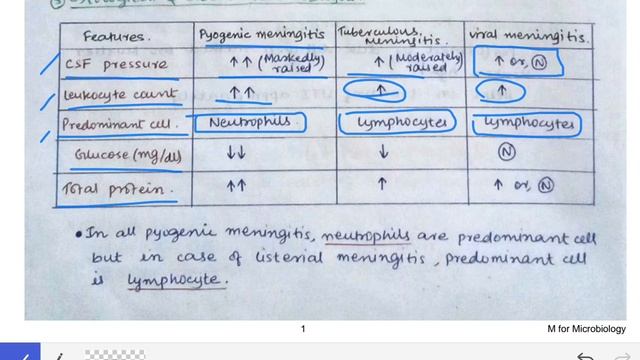 Features. Pyogenic meningitis Tuberculous meningitis. viral meningitis.
CSF pressure ↑↑ (Markedly raised) ↑ (Moderately raised) ↑ or, Ⓝ
Leukocyte count ↑↑ ↑ ↑
Predominant cell. Neutrophils. Lymphocytes Lymphocytes
Glucose (mg/dl) ↓↓ ↓ Ⓝ
Total protein. ↑↑ ↑ ↑ or, Ⓝ
• In all pyogenic meningitis, neutrophils are predominant cell
but in case of listerial meningitis, predominant cell
is lymphocyte.
1 M for Microbiology